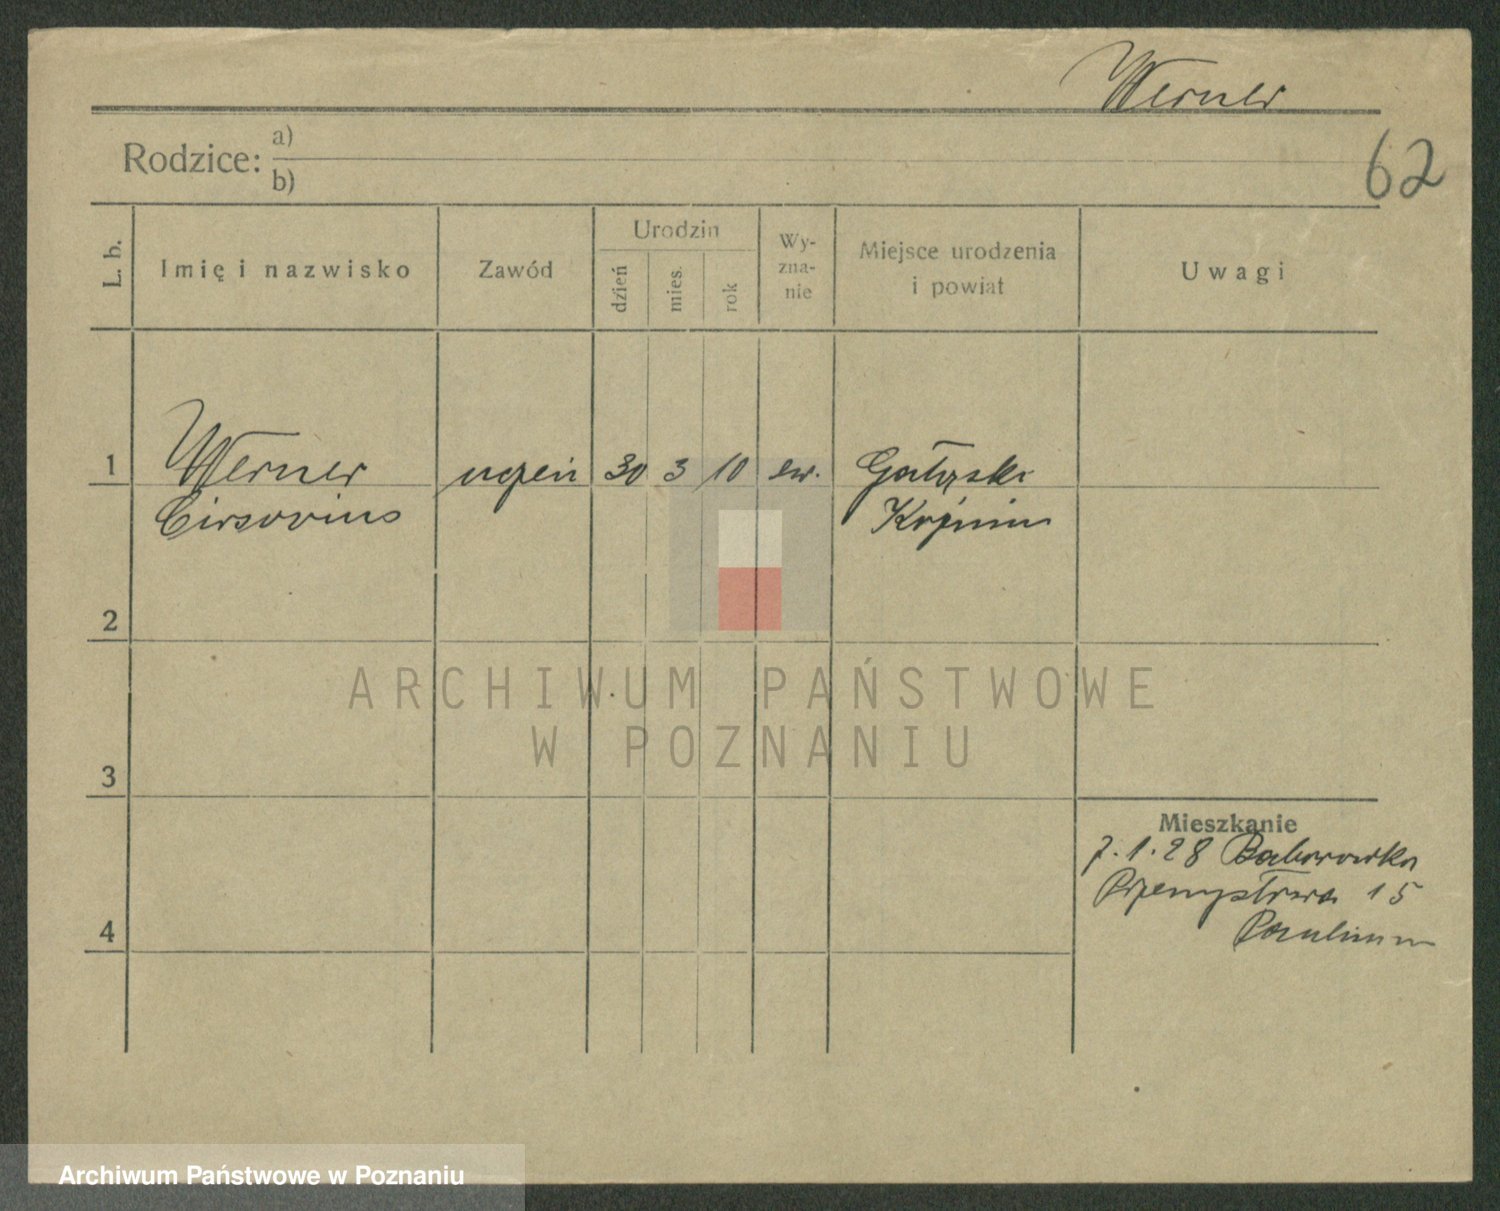 Werner
62
Rodzice: a)
b)
L. b. Imię i nazwisko Zawód Urodzin dzień mies. rok Wyzna-nie Miejsce urodzenia i powiat Uwagi
1 Werner uczeń 30 3 10 ew. Gałązki
Cirsovius Koźmin
2
ARCHIWUM PAŃSTWOWE
W POZNANIU
3
Mieszkanie
7.1.28
Przemysłowa 15
4
Archiwum Państwowe w Poznaniu